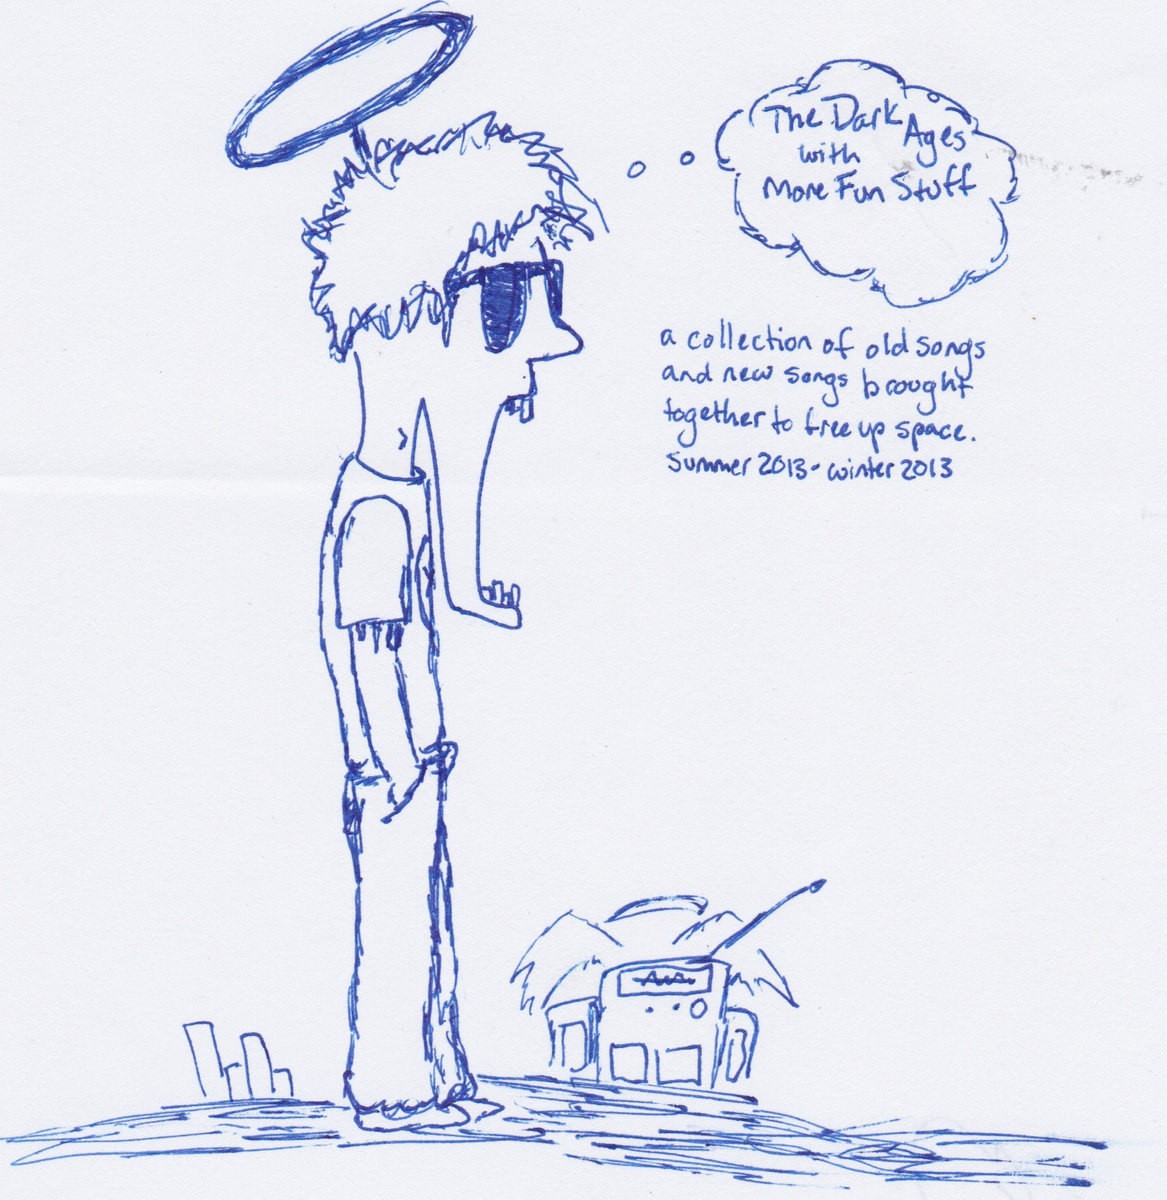 The Dark Ages
with
More Fun Stuff
a collection of old songs
and new songs brought
together to free up space.
Summer 2013 - winter 2013